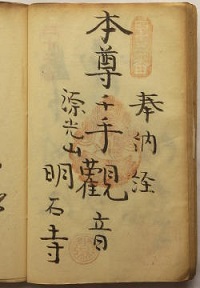 奉納経
本尊千手觀音
源光山明石寺